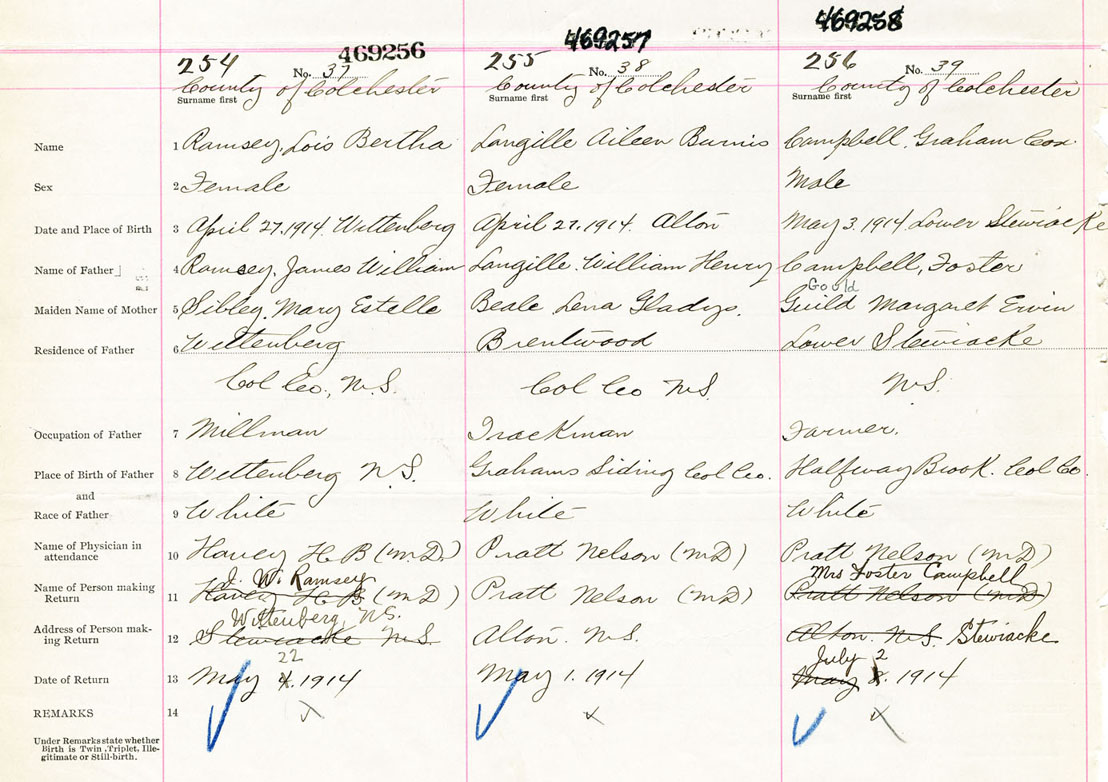 469256 469257 469258
254 No. 37 255 No. 38 256 No. 39
County of Colchester County of Colchester County of Colchester
Surname first Surname first Surname first
Name 1 Ramsey, Lois Bertha Langille Aileen Burnis Campbell, Graham Cox
Sex 2 Female Female Male
Date and Place of Birth 3 April 27, 1914. Wittenberg April 27, 1914. Alton May 3, 1914 Lower Stewiacke
Name of Father 4 Ramsey, James William Langille. William Henry Campbell, Foster
Gould
Maiden Name of Mother 5 Sibley. Mary Estelle Beale Lena Gladys. Guild Margaret Ervin
Residence of Father 6 Wittenberg Brentwood Lower Stewiacke
Col Co., N.S. Col Co N.S. N.S.
Occupation of Father 7 Millman Trackman Farmer.
Place of Birth of Father 8 Wittenberg N.S. Grahams Siding Col Co. Halfway Brook. Col Co.
and
Race of Father 9 White White White
Name of Physician in
attendance 10 Havey H B (M.D.) Pratt Nelson (M.D) Pratt Nelson (M.D)
J. W. Ramsey Mrs Foster Campbell
Name of Person making
Return 11 Havey H B (M.D) Pratt Nelson (M.D) Pratt Nelson (M.D)
Wittenberg, N.S.
Address of Person mak-
ing Return 12 Stewiacke N.S. Alton. N.S. Alton. N.S. Stewiacke
22 July 2
Date of Return 13 May 4. 1914 May 1. 1914 May 8. 1914
REMARKS 14
Under Remarks state whether
Birth is Twin, Triplet, Ille-
gitimate or Still-birth.